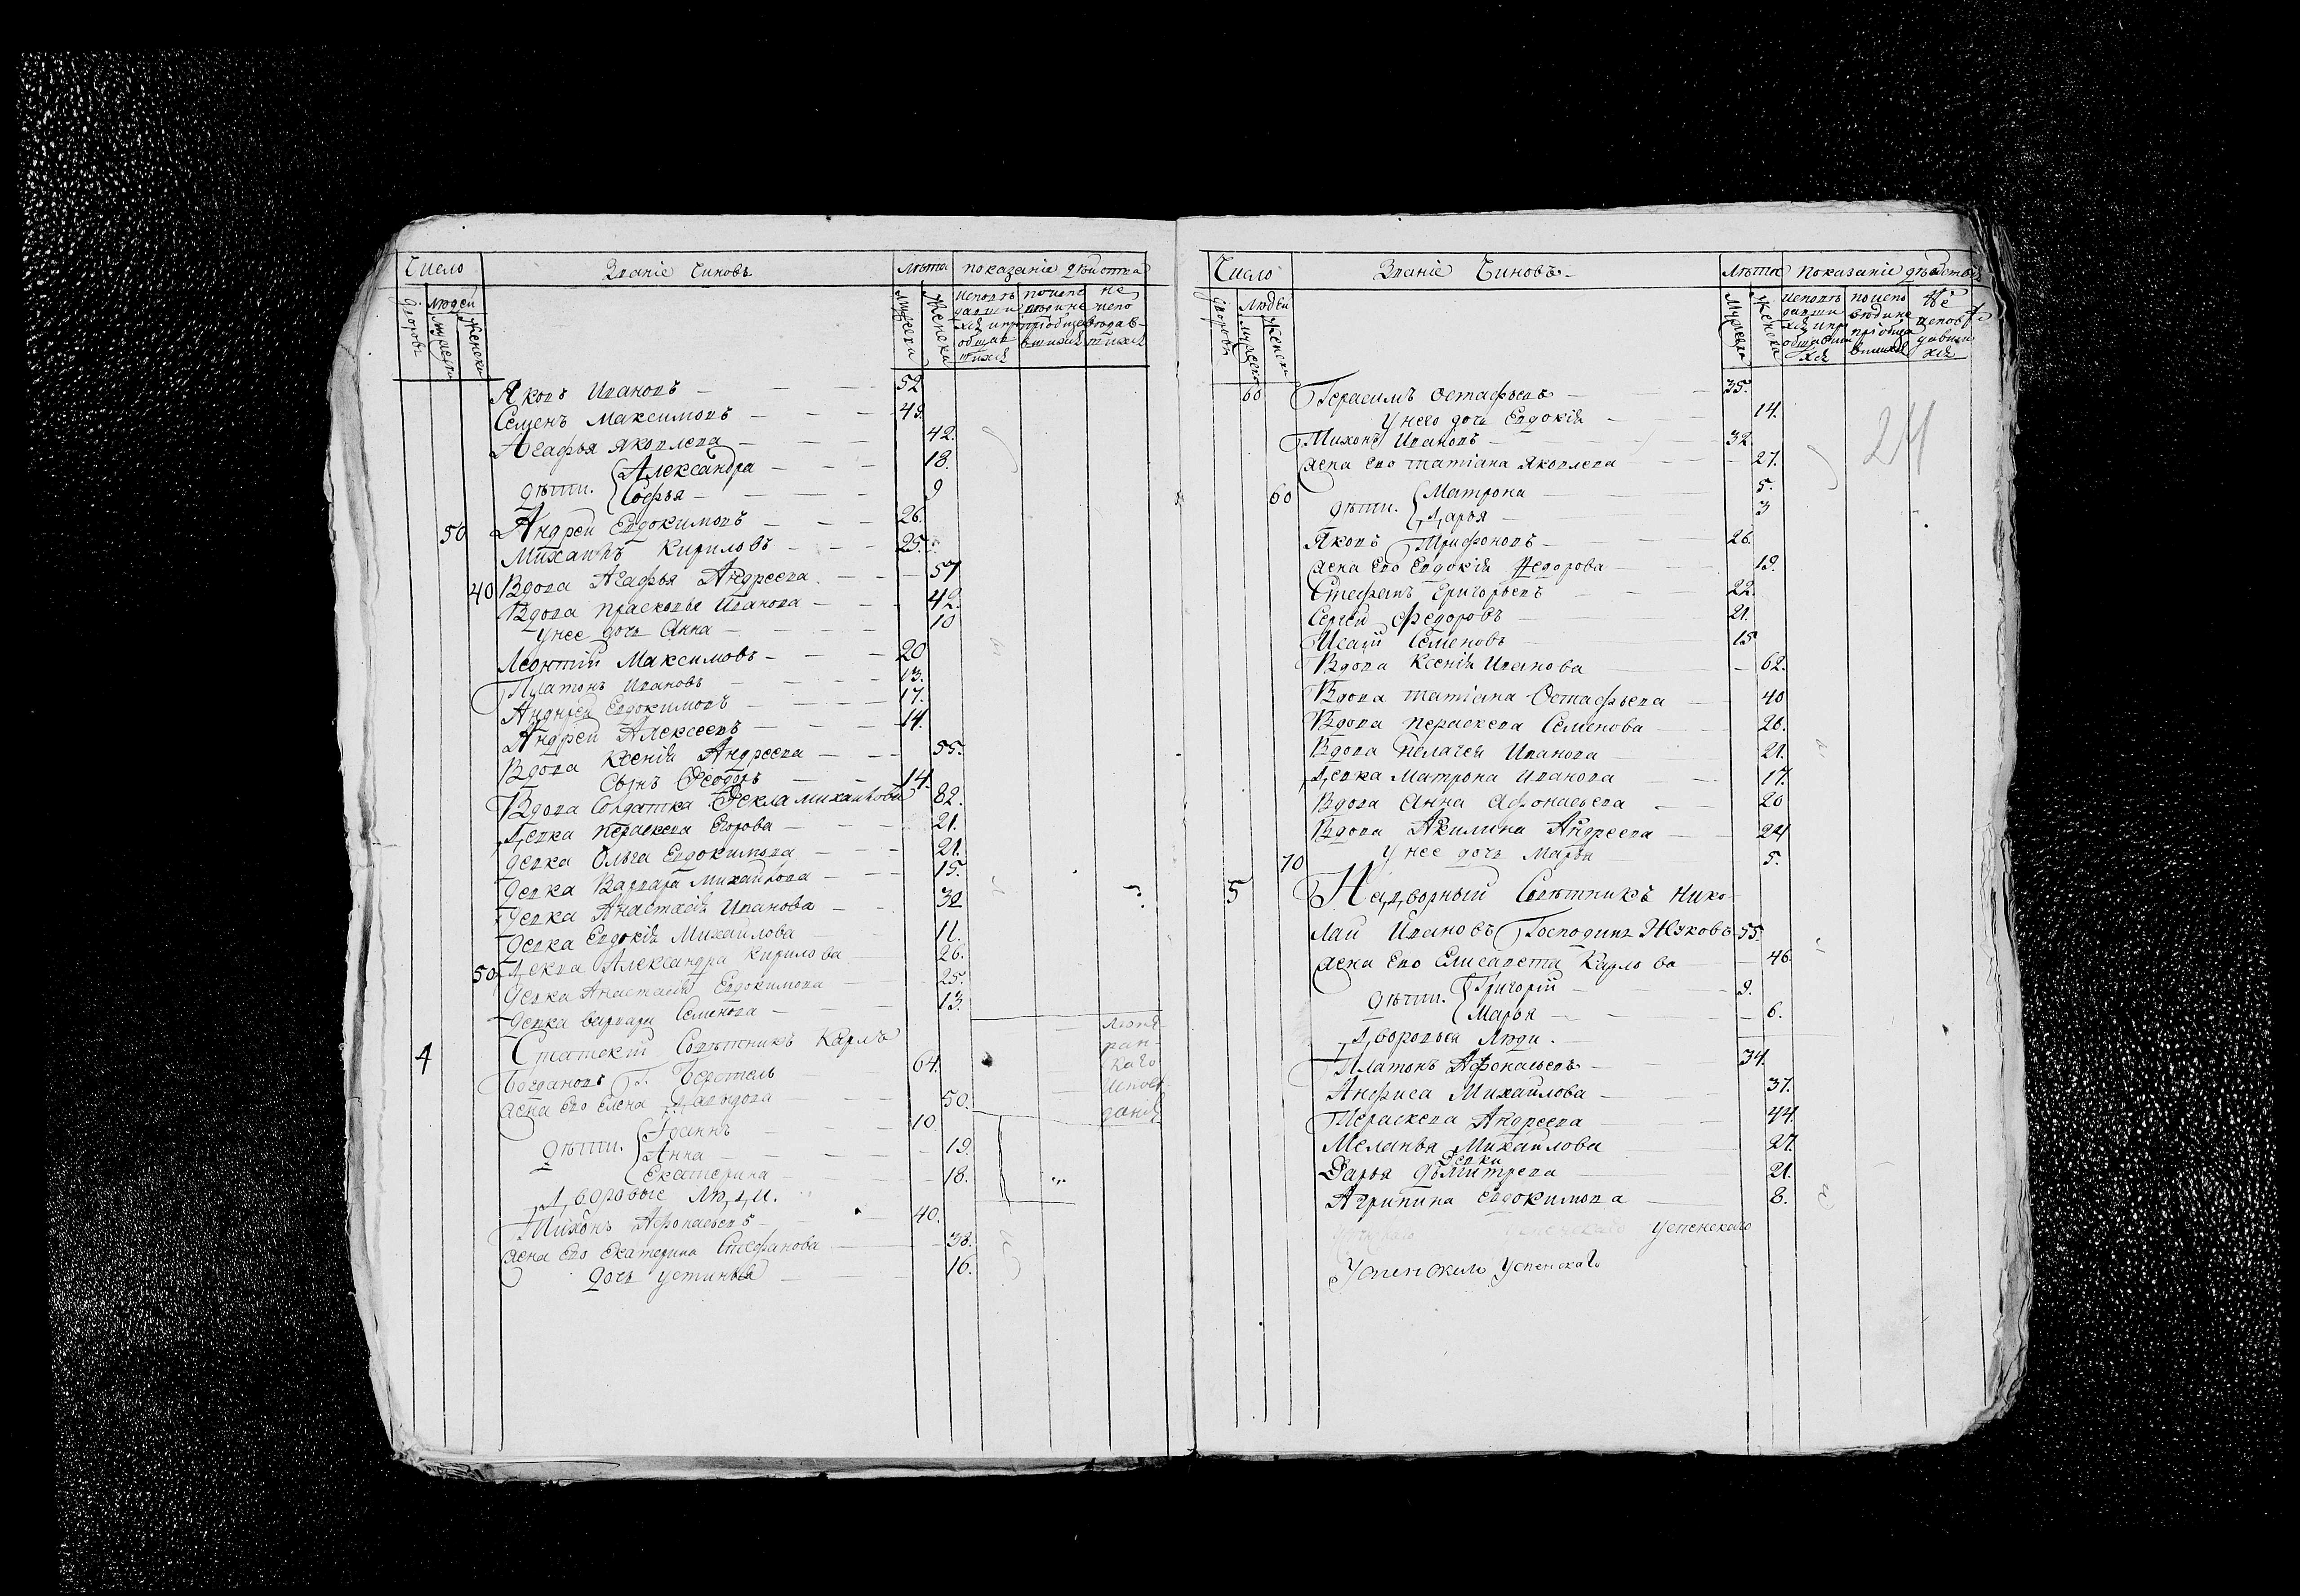 Число Званіе Чиновъ Лѣта показаніе дѣйства
дворовъ людей мужеска женска мужеска женска исповѣдавшихся и пріобщавшихся по исповѣди не пріобщавшихся не исповѣдавшихся
Яковъ Ивановъ — 52
Семенъ Максимовъ — 48.
Агафья Яковлева — 42.
дѣти. Александра — 18.
Софья — 9
50 Андрей Евдокимовъ — 26.
Михаилъ Кириловъ — 25.
40 Вдова Агафья Андреева — 57
Вдова Прасковья Иванова — 42.
У нее дочь Анна — 10
Леонтій Максимовъ — 20
Платонъ Ивановъ — 13.
Андрей Евдокимовъ — 17.
Андрей Алексеевъ — 14.
Вдова Ксенія Андреева — 55.
Сынъ Ѳеодоръ — 14.
Вдова Солдатка Ѳекла Михайлова 82.
Девка Параскева Егорова — 21.
Девка Ольга Евдокимова — 21.
Девка Варвара Михайлова — 15.
Девка Анастасія Иванова — 30
Девка Евдокія Михайлова 11.
50 Девка Александра Кирилова 26.
Девка Анастасія Евдокимова 25.
Девка Варвара Семенова — 13.
4 Статскій Совѣтникъ Карлъ
Богдановъ Г. Ферстель 64. лютеранскаго исповѣданія
Жена Его Елена Давыдова — 50.
дѣти. Іоаннъ — 10
Анна — 19.
Екатерина — 18.
Дворовые Люди.
Тихонъ Афонасьевъ — 40.
Жена Его Екатерина Стефанова 38.
дочь Устинья — 16.
Число Званіе Чиновъ — Лѣта показаніе дѣйства
дворовъ людей мужеска женска мужеска женска исповѣдавшихся и пріобщавшихся по исповѣди не пріобщавшихся не исповѣдавшихся
24
60 Герасимъ Остафьевъ — 35.
У него дочь Евдокія — 14.
Тихонъ Ивановъ — 32.
Жена Его Татіана Яковлева — 27.
60 дѣти. Матрона — 5.
Дарья — 3
Яковъ Трифоновъ — 26.
Жена Его Евдокія Ѳедорова — 19.
Стефанъ Григорьевъ — 22.
Сергей Федоровъ — 21.
Исаій Семеновъ — 15
Вдова Ксенія Иванова — 62.
Вдова Татіана Остафьева — 40
Вдова Параскева Семенова — 26.
Вдова Пелагея Иванова — 21.
Девка Матрона Иванова — 17.
Вдова Анна Афонасьева — 20
Вдова Акилина Андреева — 24
70 У нее дочь Марья — 5.
5 Надворный Совѣтникъ Нико-
лай Ивановъ Господинъ Жуковъ 55.
Жена Его Елисавета Карлова — 46.
дѣти. Григорій — 9.
Марья — 6.
Дворовыя Люди.
Платонъ Афонасьевъ — 34.
Анфиса Михайлова — 37.
Параскева Андреева — 44.
Меланья Михайлова 27.
Девки
Дарья Дъмитрева 21.
Агрипина Евдокимова — 8.
Успенскаго Успенскаго
Успенскимъ Успенскаго